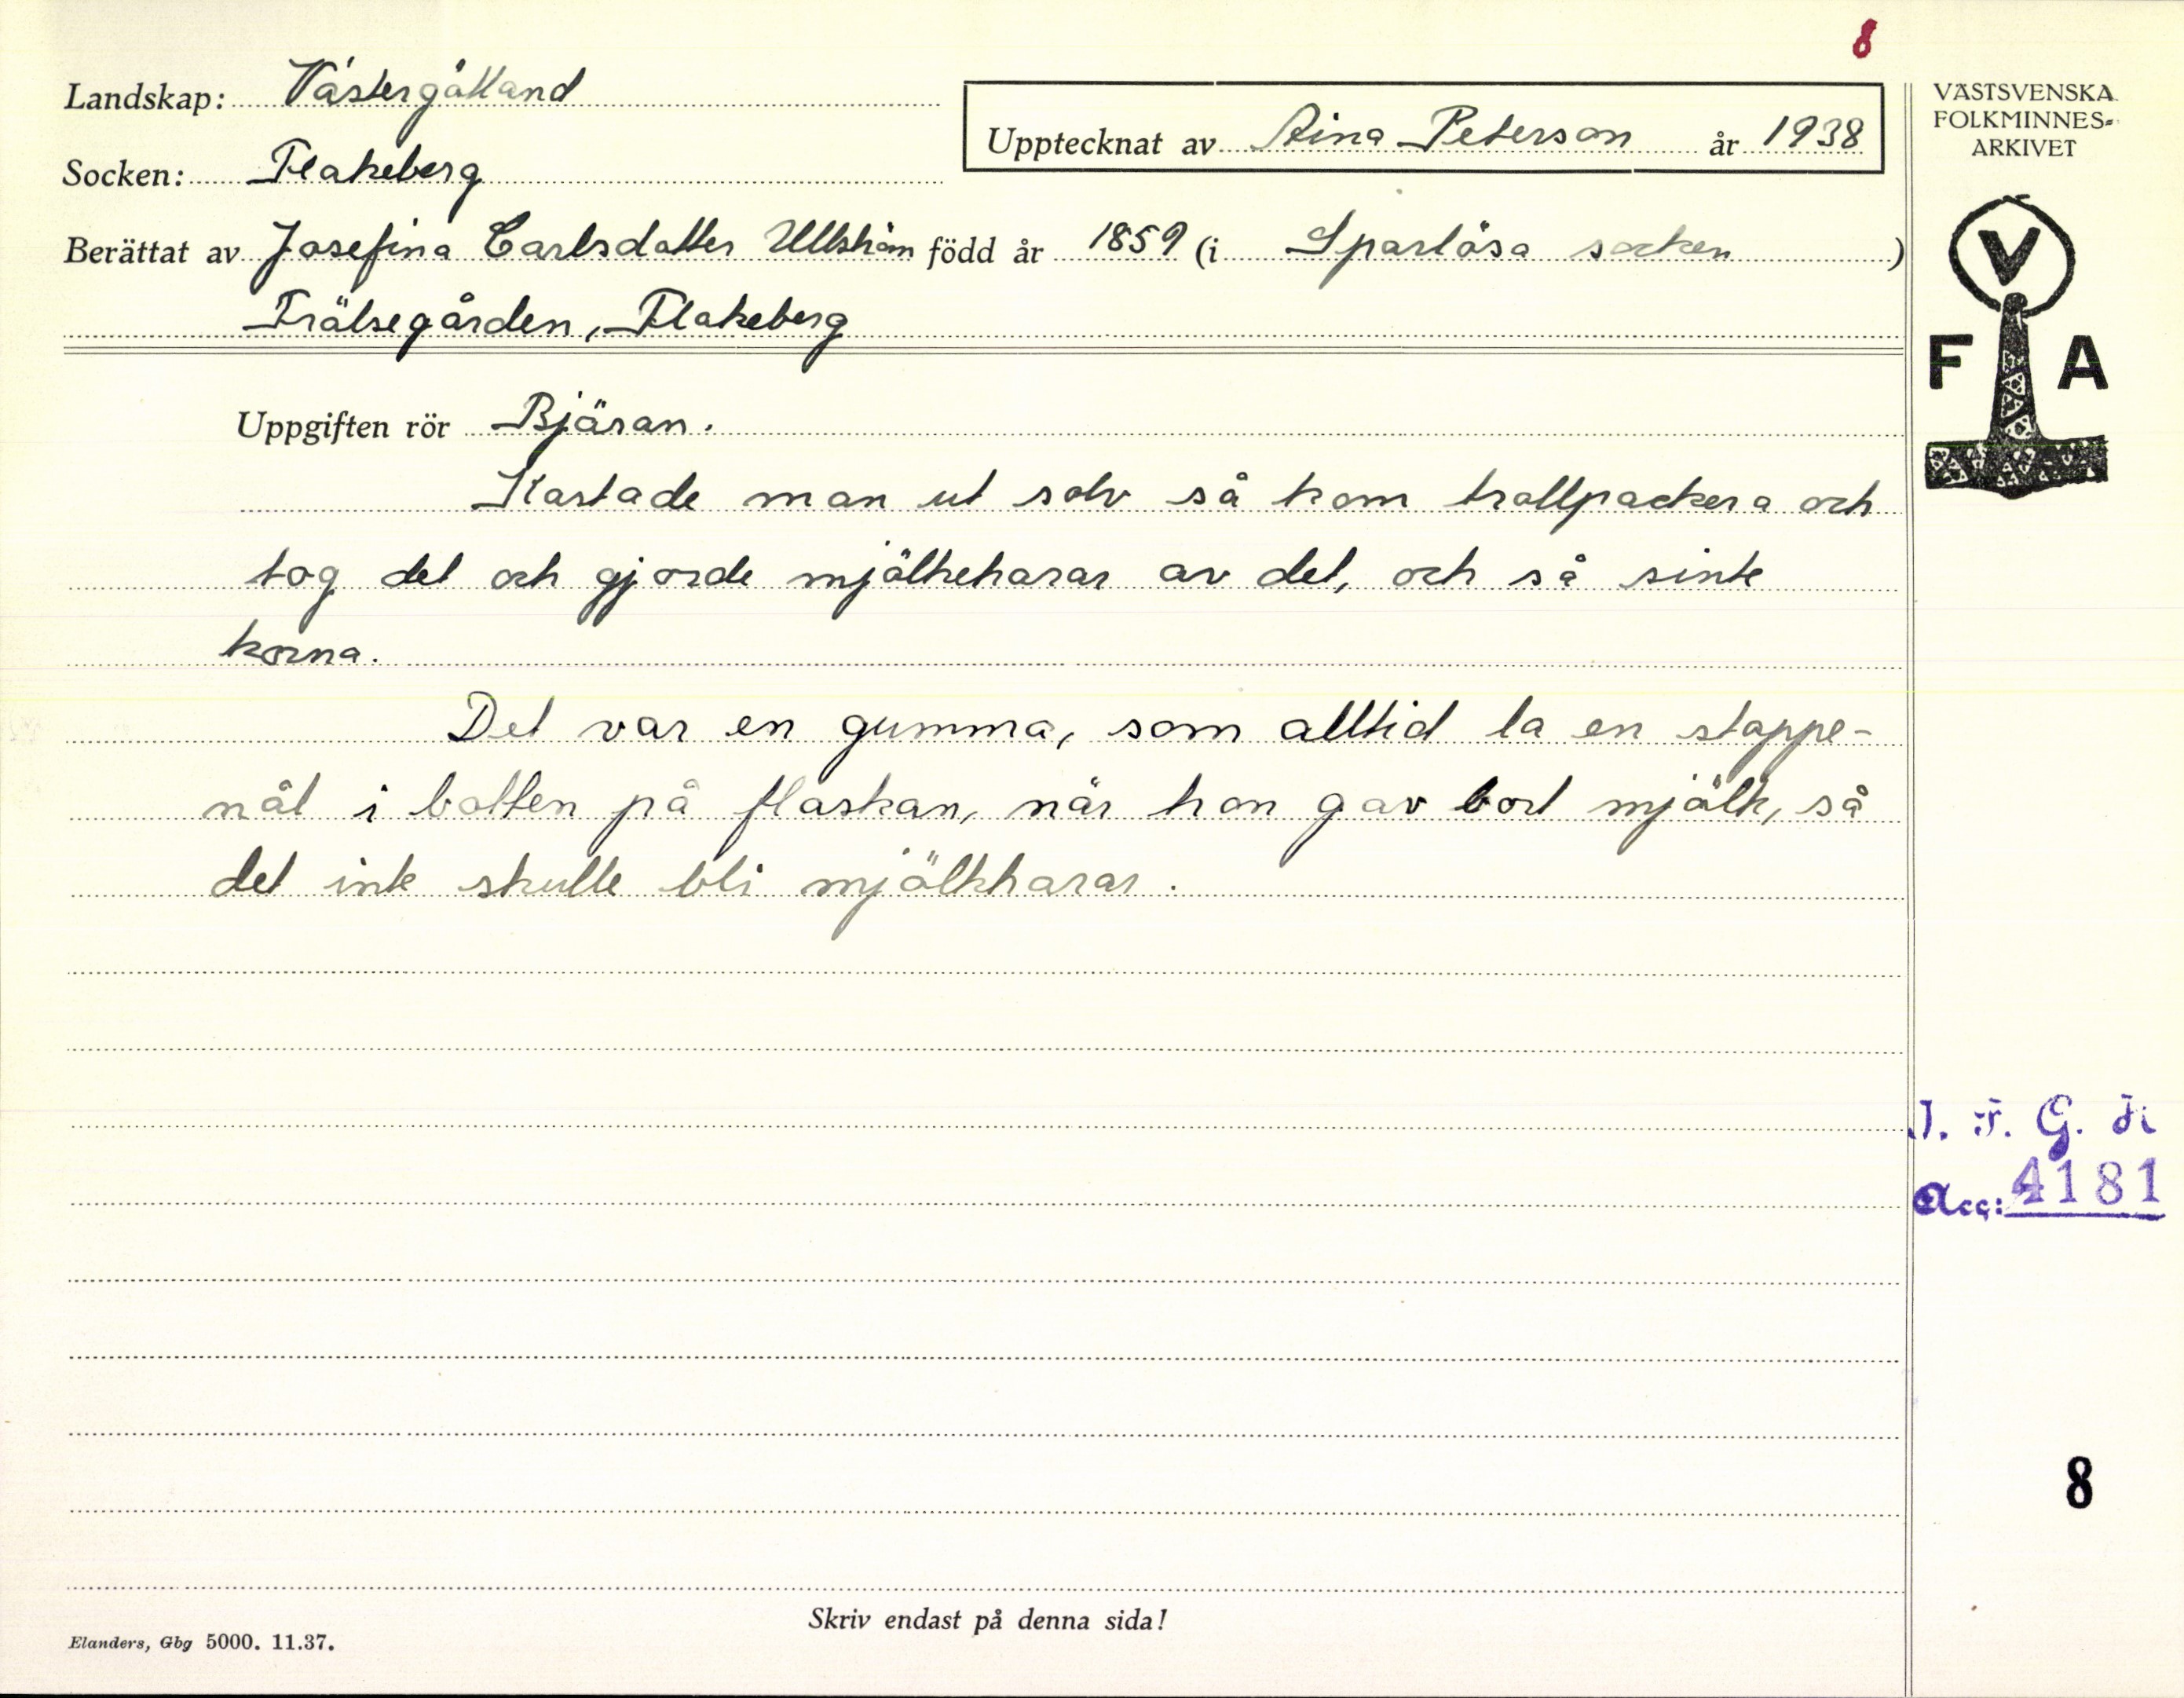 8
Landskap: Västergötland
Upptecknat av Aina Peterson år 1938
Socken: Flakeberg
Berättat av Josefina Carlsdotter Ullström född år 1859 (i Sparlösa socken)
Frälsegården, Flakeberg
VÄSTSVENSKA
FOLKMINNES-
ARKIVET
V
F A
Uppgiften rör Bjäran.
Kastade man ut solv så kom trollpackera och
tog det och gjorde mjölkeharar av det, och så sinte
korna.
Det var en gumma, som alltid la en stoppe-
nål i botten på flaskan, när hon gav bort mjölk, så
det inte skulle bli mjölkharar.
G.
Acc: 4181
8
Skriv endast på denna sida!
Elanders, Gbg 5000. 11.37.